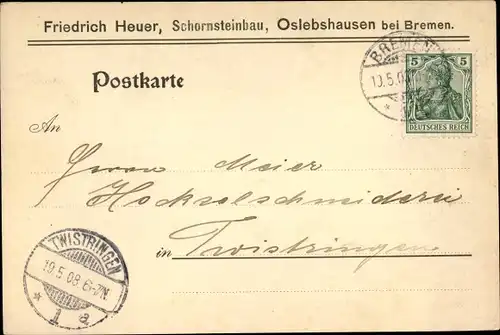 Friedrich Heuer, Schornsteinbau, Oslebshausen bei Bremen.
Postkarte
BREMEN
19.5.08
5 5
DEUTSCHES REICH
An
Herrn Meier
in Twistringen
TWISTRINGEN
19.5.08.6-7N.
* 1 a *